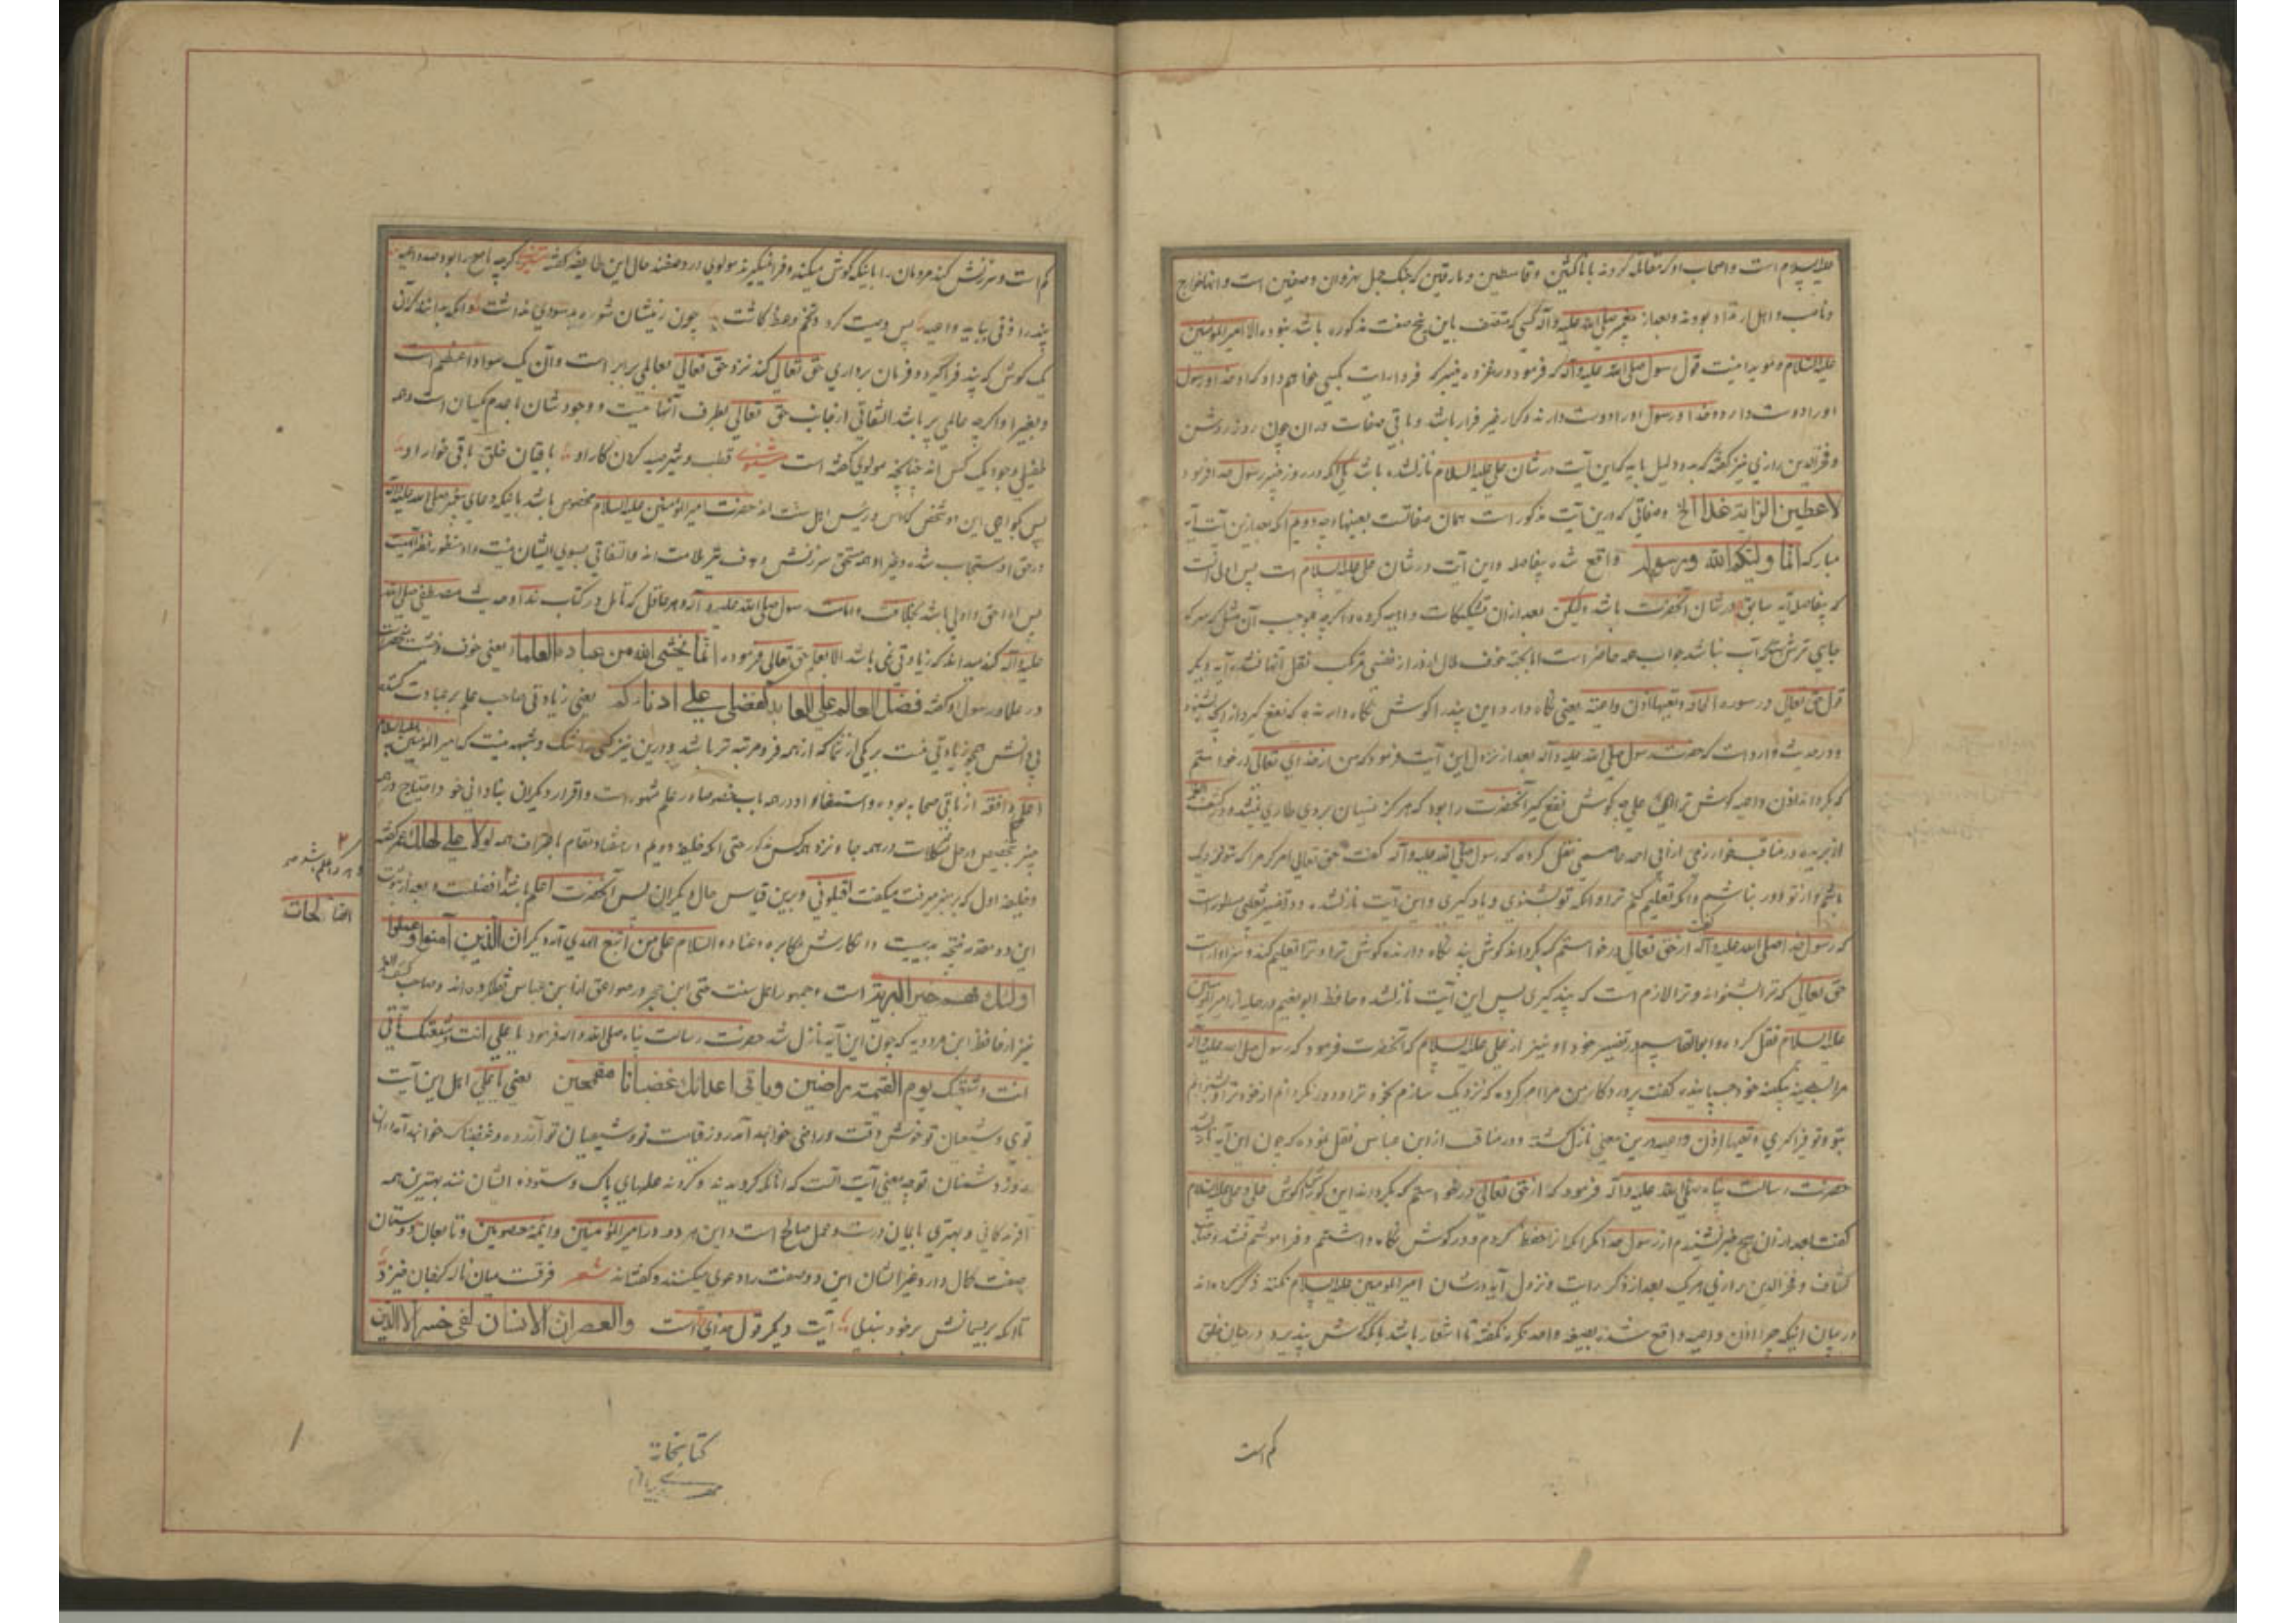 علیه السلام است و اصحاب او که مقاتله کردند با ناکثین و قاسطین و مارقین که جنگ جمل نهروان و صفین است و انها خوارج
و اهل ارتداد بودند و بعد از پیغمبر صلی الله علیه و آله کسی که متصف باین پنج صفت مذکوره باشد نبوده الا امیرالمؤمنین
علیه السلام و مؤید اینست قول رسول صلی الله علیه و آله که فرمود در غزوه خیبر که فردا رایت بکسی خواهم داد که او خدا و رسول
او را دوست دارد و خدا و رسول او را دوست دارند و کرار غیر فرار باشد و باقی صفات در ان چون روز روشن
و فخرالدین رازی نیز گفته که بدو دلیل باید که این آیت در شان علی علیه السلام نازلشده باشد یکی انکه در روز خیبر رسول خدا فرمود
لاعطین الرایة غدا الخ و صفاتی که درین آیت مذکور است همان صفاتست بعینها وجه دویم انکه بعد ازین آیت آیه
مبارکه انما ولیکم الله ورسوله واقع شده بیفاصله و این آیت در شان علی علیه السلام است پس اولی انست
که بیفاصله آیه سابق در شان آنحضرت باشد و لیکن بعد از ان تشکیکات واهیه کرده و اگر چه بموجب آن مثل که هر که
جایی ترش آب نباشد جواب همه حاضر است اما بجهة خوف ملال نقل آنها نشد آیه دیگر
قول حق تعالی در سوره الحاقة وتعیها اذن واعیة یعنی نگاه دارد این پند را گوش نگاه دارنده که نفع گیرد از انچه بشنود
و در حدیث وارد است که حضرت رسول صلی الله علیه و آله بعد از نزول این آیت فرمود که من از خدای تعالی درخواستم
که بگرداند اذن واعیه گوش ترا ای علی چه گوش نفع گیر آنحضرت را بود که هرگز نسیان بر وی طاری نمیشد و در کشف الغمه
نقل کرده که رسول صلی الله علیه و آله گفت حق تعالی امر کرد مرا که بتو نزدیک
باشم و از تو دور نباشم و انکه تعلیم کنم ترا و انکه تو بشنوی و یاد گیری و این آیت نازلشد و در تفسیر ثعلبی مسطور است
که رسول خدا صلی الله علیه و آله گفت از حق تعالی درخواستم که بگرداند گوش پند نگاه دارنده گوش ترا و ترا تعلیم کند و سزاوار است
حق تعالی که ترا بشنواند و ترا لازم است که پند گیری پس این آیت نازلشد و حافظ ابو نعیم در حلیه از امیر المؤمنین
علیه السلام نقل کرده و ابو القاسم در تفسیر خود او نیز از علی علیه السلام که آنحضرت فرمود که رسول صلی الله علیه و آله
مرا بسینه خود چسبانیده گفت پروردگار من مرا امر کرده که نزدیک سازم بخود ترا و دور نگردانم از خود ترا
وتعیها اذن واعیة درین معنی نازل گشته و در مناقب از ابن عباس نقل نموده که چون این آیه نازلشد
حضرت رسالت پناه صلی الله علیه و آله فرمود که از حق تعالی درخواستم که بگرداند این گوش را گوش علی و علی علیه السلام
گفت بعد از ان هیچ خبر نشنیدم از رسول خدا مگر انکه انرا حفظ کردم و در گوش نگاه داشتم و فراموشم نشد و صاحب
کشاف و فخرالدین رازی هر یک بعد از ذکر روایت و نزول آیه در شان امیر المومنین علیه السلام نکته ذکر کرده اند
در بیان اینکه چرا اذن واعیه واقع شده بصیغه واحد نکره نگفته تا اشعار باشد بانکه گوش پند پذیر در میان خلق
کم است
کم است و سرزنش کند مردمان را بانیکه گوش میکنند و فرا نمیگیرند مولوی در وصف حال این طایفه گفته مثنوی گرچه ناصح را بود صد داعیه
پند را اذنی بباید واعیه پس وصیت کرد و تخم وعظ کاشت چون زمینشان شوره بد سودی نداشت و انکه بدانند که آن
یک گوش که پند فراگیرد و فرمان برداری حق تعالی کند نزد حق تعالی بعالمی برابر است و آن یک سواد اعظم است
و بغیر او اگر چه عالمی پر باشد التفاتی از جانب حق تعالی بطرف آنها نیست و وجودشان با عدم یکسان است و همه
طفیلی وجود یک کس اند چنانچه مولوی گفته است مثنوی قطب و شیر صید کردن کار او باقیان خلق باقی خوار او
پس بگواهی این دو شخص که راس و رئیس اهل سنت اند حضرت امیر المؤمنین علیه السلام مخصوص باشد بانیکه دعای پیغمبر صلی الله علیه وآله
در حق او مستجاب شده و غیر او همه مستحق سرزنش و هدف تیر ملامت اند و التفاتی بسوی ایشان نیست و او منظور نظر الهیست
پس او احق و اولی باشد بخلافت و امامت رسول صلی الله علیه و آله و هر عاقل که تامل در کتاب خدا و حدیث مصطفی صلی الله
علیه و آله کند میداند که زیادتی نمی باشد الا بعلم حق تعالی فرموده انما یخشی الله من عباده العلماء یعنی خوف و خشیت
در علما و رسول او گفته فضل العالم علی العابد کفضلی علی ادناکم یعنی زیادتی صاحب علم بر عبادت کننده
بی دانش همچو زیادتی منست بر یکی از شما که از همه فرومرتبه تر باشد و درین نیز کسی را شک و شبهه نیست که امیر المؤمنین علیه السلام
اعلم و افقه از باقی صحابه بوده و استفاده او در هر باب مشهور است و اقرار دیگران بنادانی خود و احتیاج در همه
چیز بتخصیص در حل مشکلات در همه جا و نزد همه کس مذکور حتی انکه خلیفه دویم در هفتاد مقام باعتراف همه لولا علی لهلک عمر گفته
و خلیفه اول که بر منبر میرفت میگفت اقیلونی و برین قیاس حال دیگران پس آنحضرت اعلم باشد افضلست و بعد از ثبوت
و هر که اعلم باشد
این دو مقدمه نتیجه بدیهیست و انکارش مکابره و عناد والسلام علی من اتبع الهدی آیه دیگر ان الذین آمنوا وعملوا
الصالحات
اولئک هم خیر البریة است و جمهور اهل سنت حتی ابن حجر در صواعق از ابن عباس نقل کرده اند و صاحب کشف الغمه
نیز از حافظ ابن مردویه که چون این آیه نازل شد حضرت رسالت پناه صلی الله و اله فرمود یا علی انت وشیعتک تأتی
انت وشیعتک یوم القیمة راضین ویأتی اعدائک غضبانا مقمحین یعنی یا علی اهل این آیت
توی و شیعیان تو خوش وقت و راضی خواهید آمد روز قیامت تو و شیعیان تو و آزرده و غضبناک خواهند آمد در ان
روز دشمنان تو چه معنی آیت انست که انانکه گرویدند و کردند عملهای پاک و ستوده ایشان بهترین همه
آفریدگانی و بهتری با ایمان درست و عمل صالح است و این هر دو در امیر المؤمنین و ائمه معصومین و تابعان دوستان
صفت کمال دارد و غیر ایشان این دو صفت را دعوی میکنند و گفته اند شعر
تا انکه بریسمانش بر خود بندی آیت دیگر قول خدای است والعصر ان الانسان لفی خسر الا الذین
کتابخانه